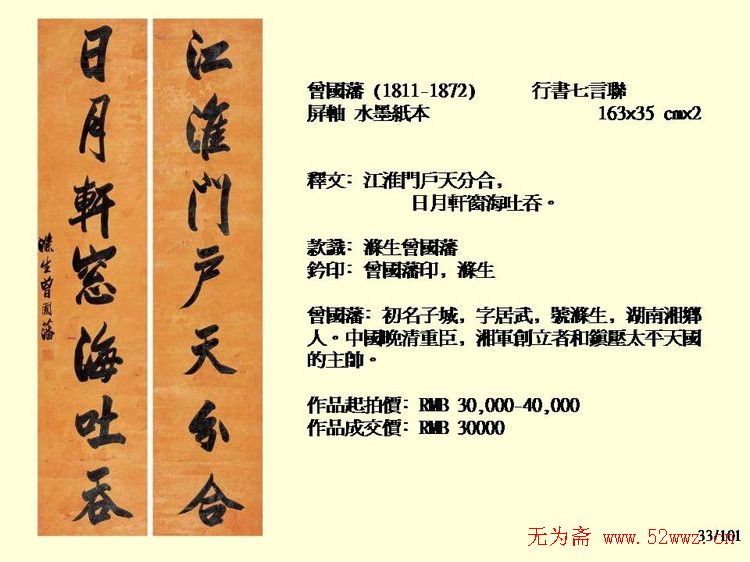 江淮門戶天分合
日月軒窗海吐吞
滌生曾國藩
曾國藩 (1811-1872) 行書七言聯
屏軸 水墨紙本 163x35 cmx2
釋文: 江淮門戶天分合,
日月軒窗海吐吞。
款識: 滌生曾國藩
鈐印: 曾國藩印, 滌生
曾國藩: 初名子城, 字居武, 號滌生, 湖南湘鄉
人。中國晚清重臣, 湘軍創立者和鎮壓太平天國
的主帥。
作品起拍價: RMB 30,000-40,000
作品成交價: RMB 30000
33/101
无为斋 www.52wwz.cn